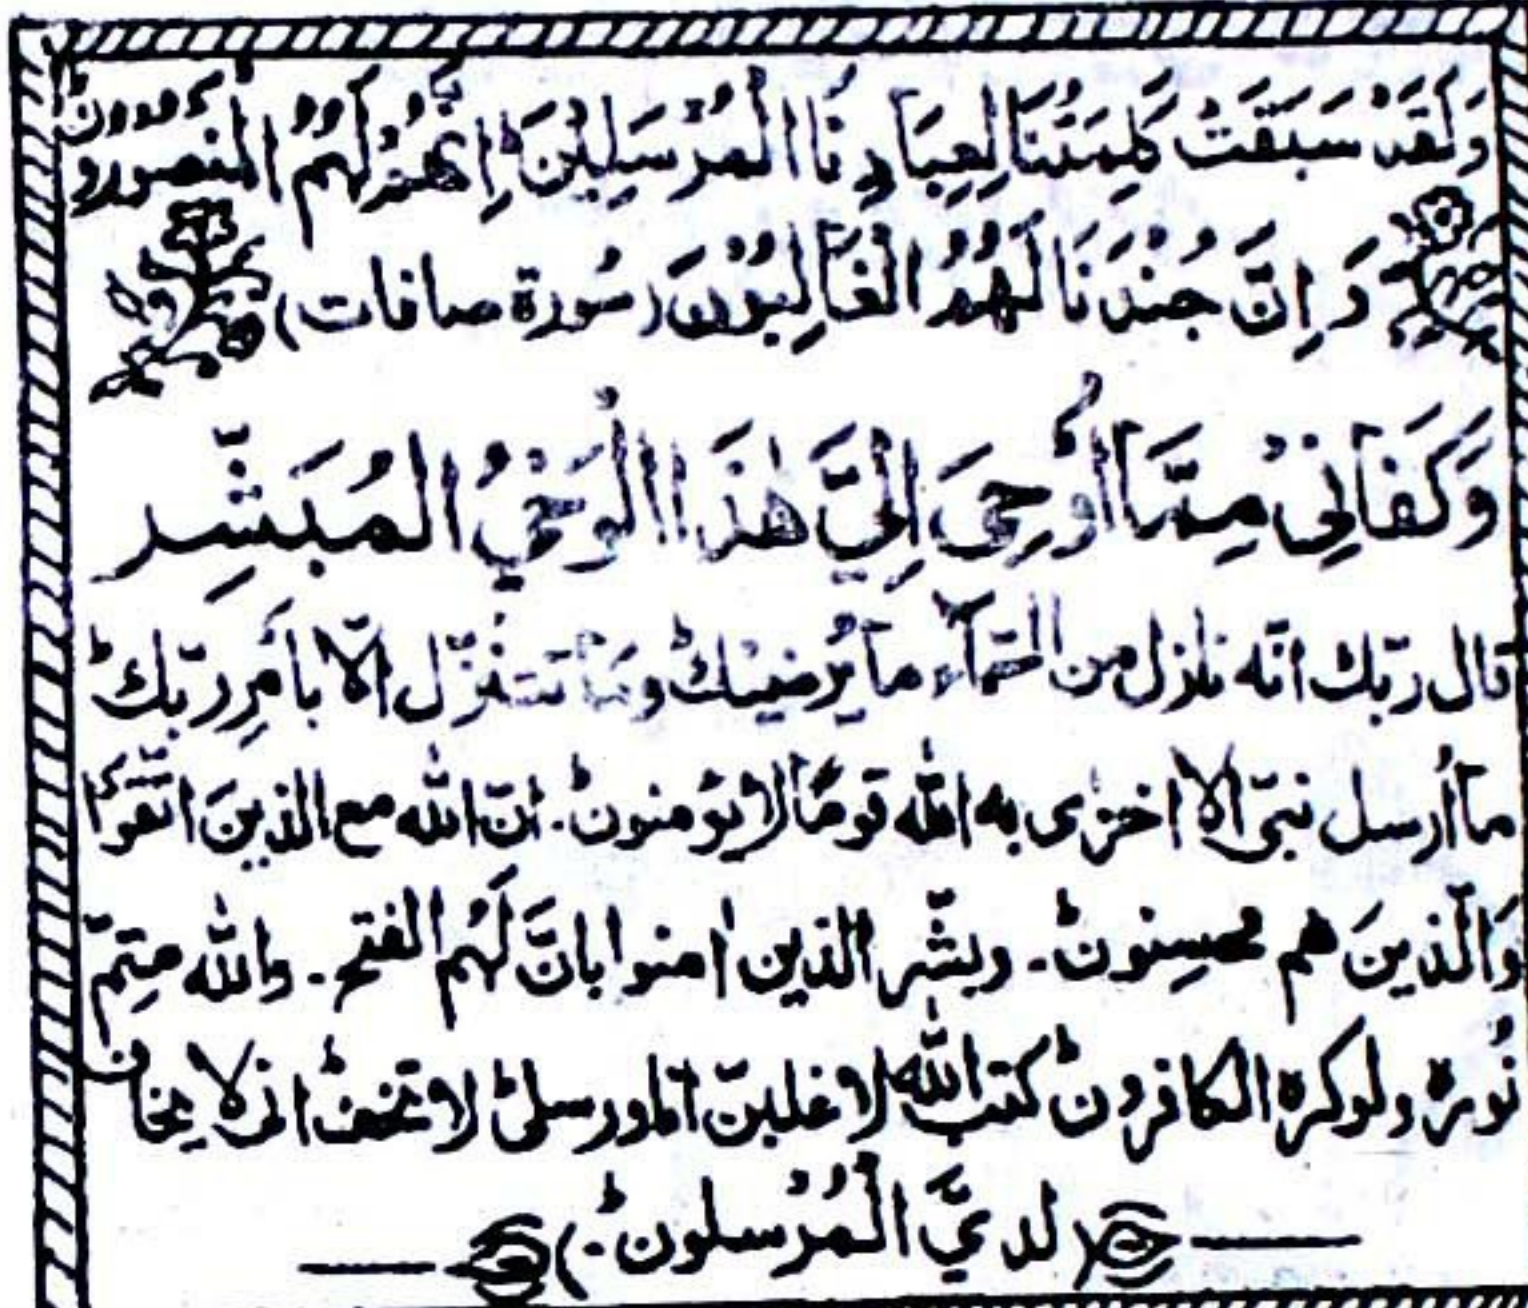 وَلَقَدْ سَبَقَتْ كَلِمَتُنَا لِعِبَادِنَا الْمُرْسَلِيْنَ اِنَّهُمْ لَهُمُ الْمَنْصُوْرُوْنَ
وَاِنَّ جُنْدَنَا لَهُمُ الْغَالِبُوْنَ (سُورة صافات)
وَكَفَانِيْ مِمَّا أُوحِيَ اِلَيَّ هٰذَا الْوَحْيُ المُبَشِّر
قال ربّك انّه نازل من السّمآء مآ يُرضيك وما نتنزّل الّا بأمرِ ربّك
مآ أُرسل نبیّ الا اخزٰى به الله قومًا لا يؤمنون۔ انّ الله مع الذينَ اتّقوا
وَالّذينَ هم محسِنون۔ وبشّر الذين اٰمنوا بانَّ لَهُم الفتح۔ والله متِمّ
نُورهٖ ولو كره الكافرون كتب الله لاغلبنّ انا ورسلى لا تخف انى لا يخاف
(لديَّ الْمُرْسلون۔)